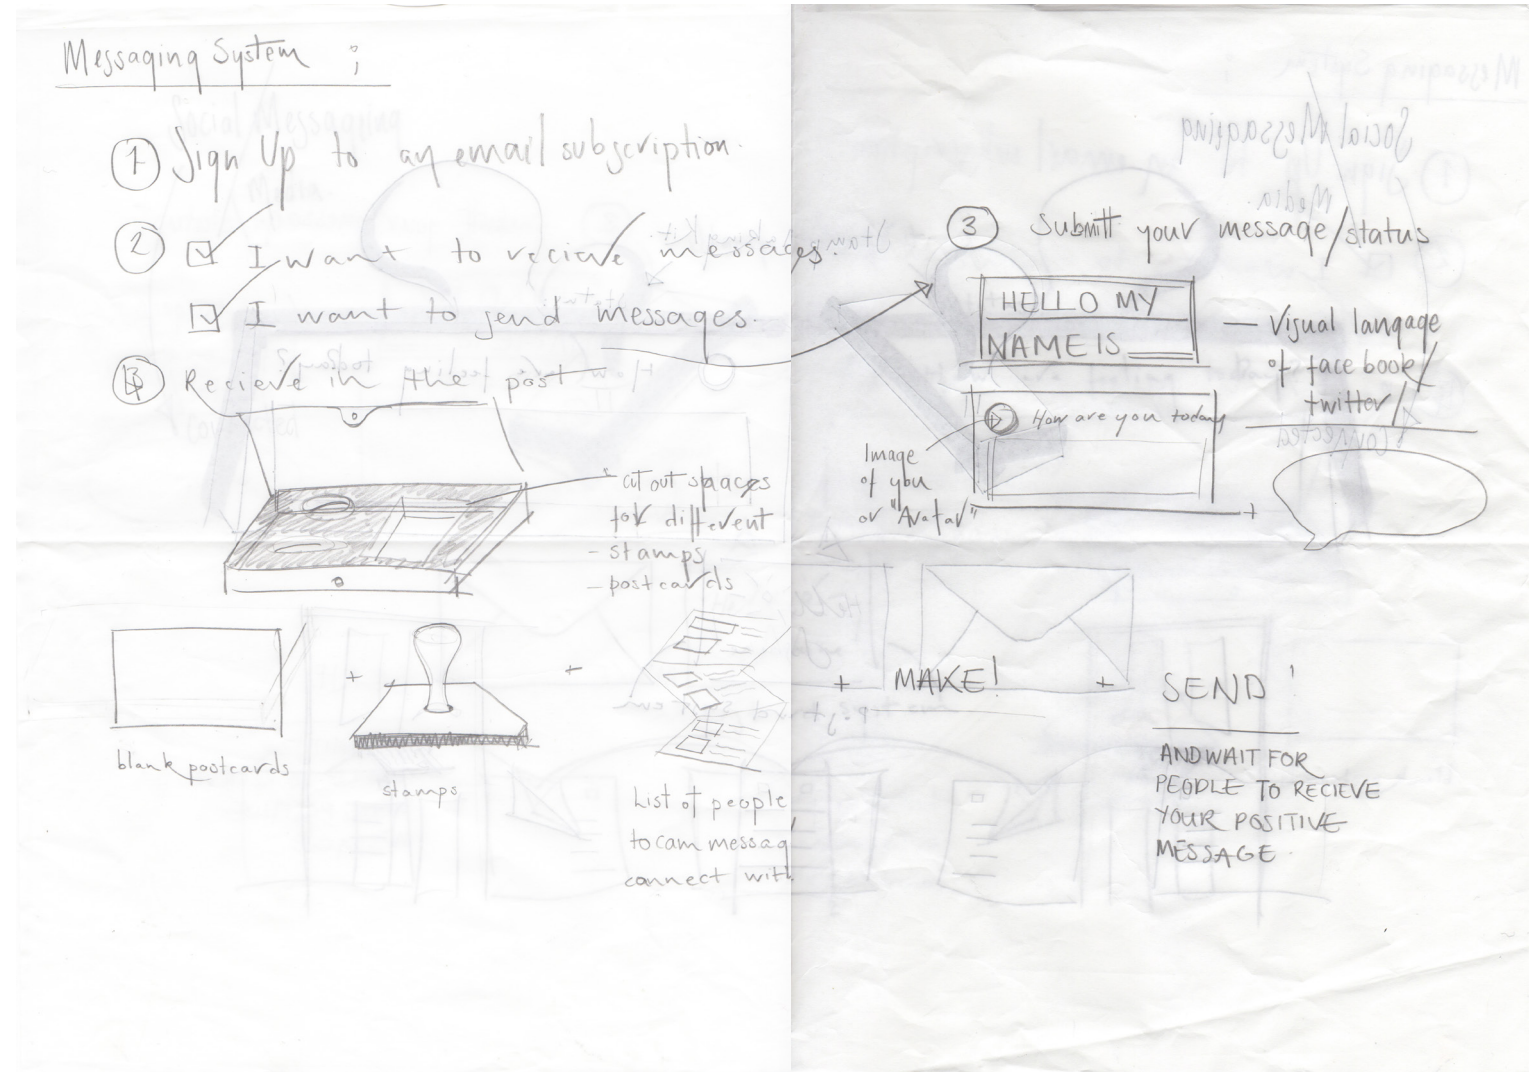 Messaging System ;
① Sign Up to an email subscription.
② ☑ I want to recieve messages.
☑ I want to send messages.
Recieve in the post
cut out spaaces
for different
- stamps
- postcards
blank postcards
+
stamps
+
List of people
to cam messag
connect with
③ Submitt your message/status
HELLO MY
NAME IS ___
— Visual langage
of face book/
twitter/
How are you today
Image
of you
or "Avatar"
+
+ MAKE!
+ SEND !
AND WAIT FOR
PEOPLE TO RECIEVE
YOUR POSITIVE
MESSAGE.
Social Messaging
Media.
Stamp making Kit.
How are you feeling today?
Connected